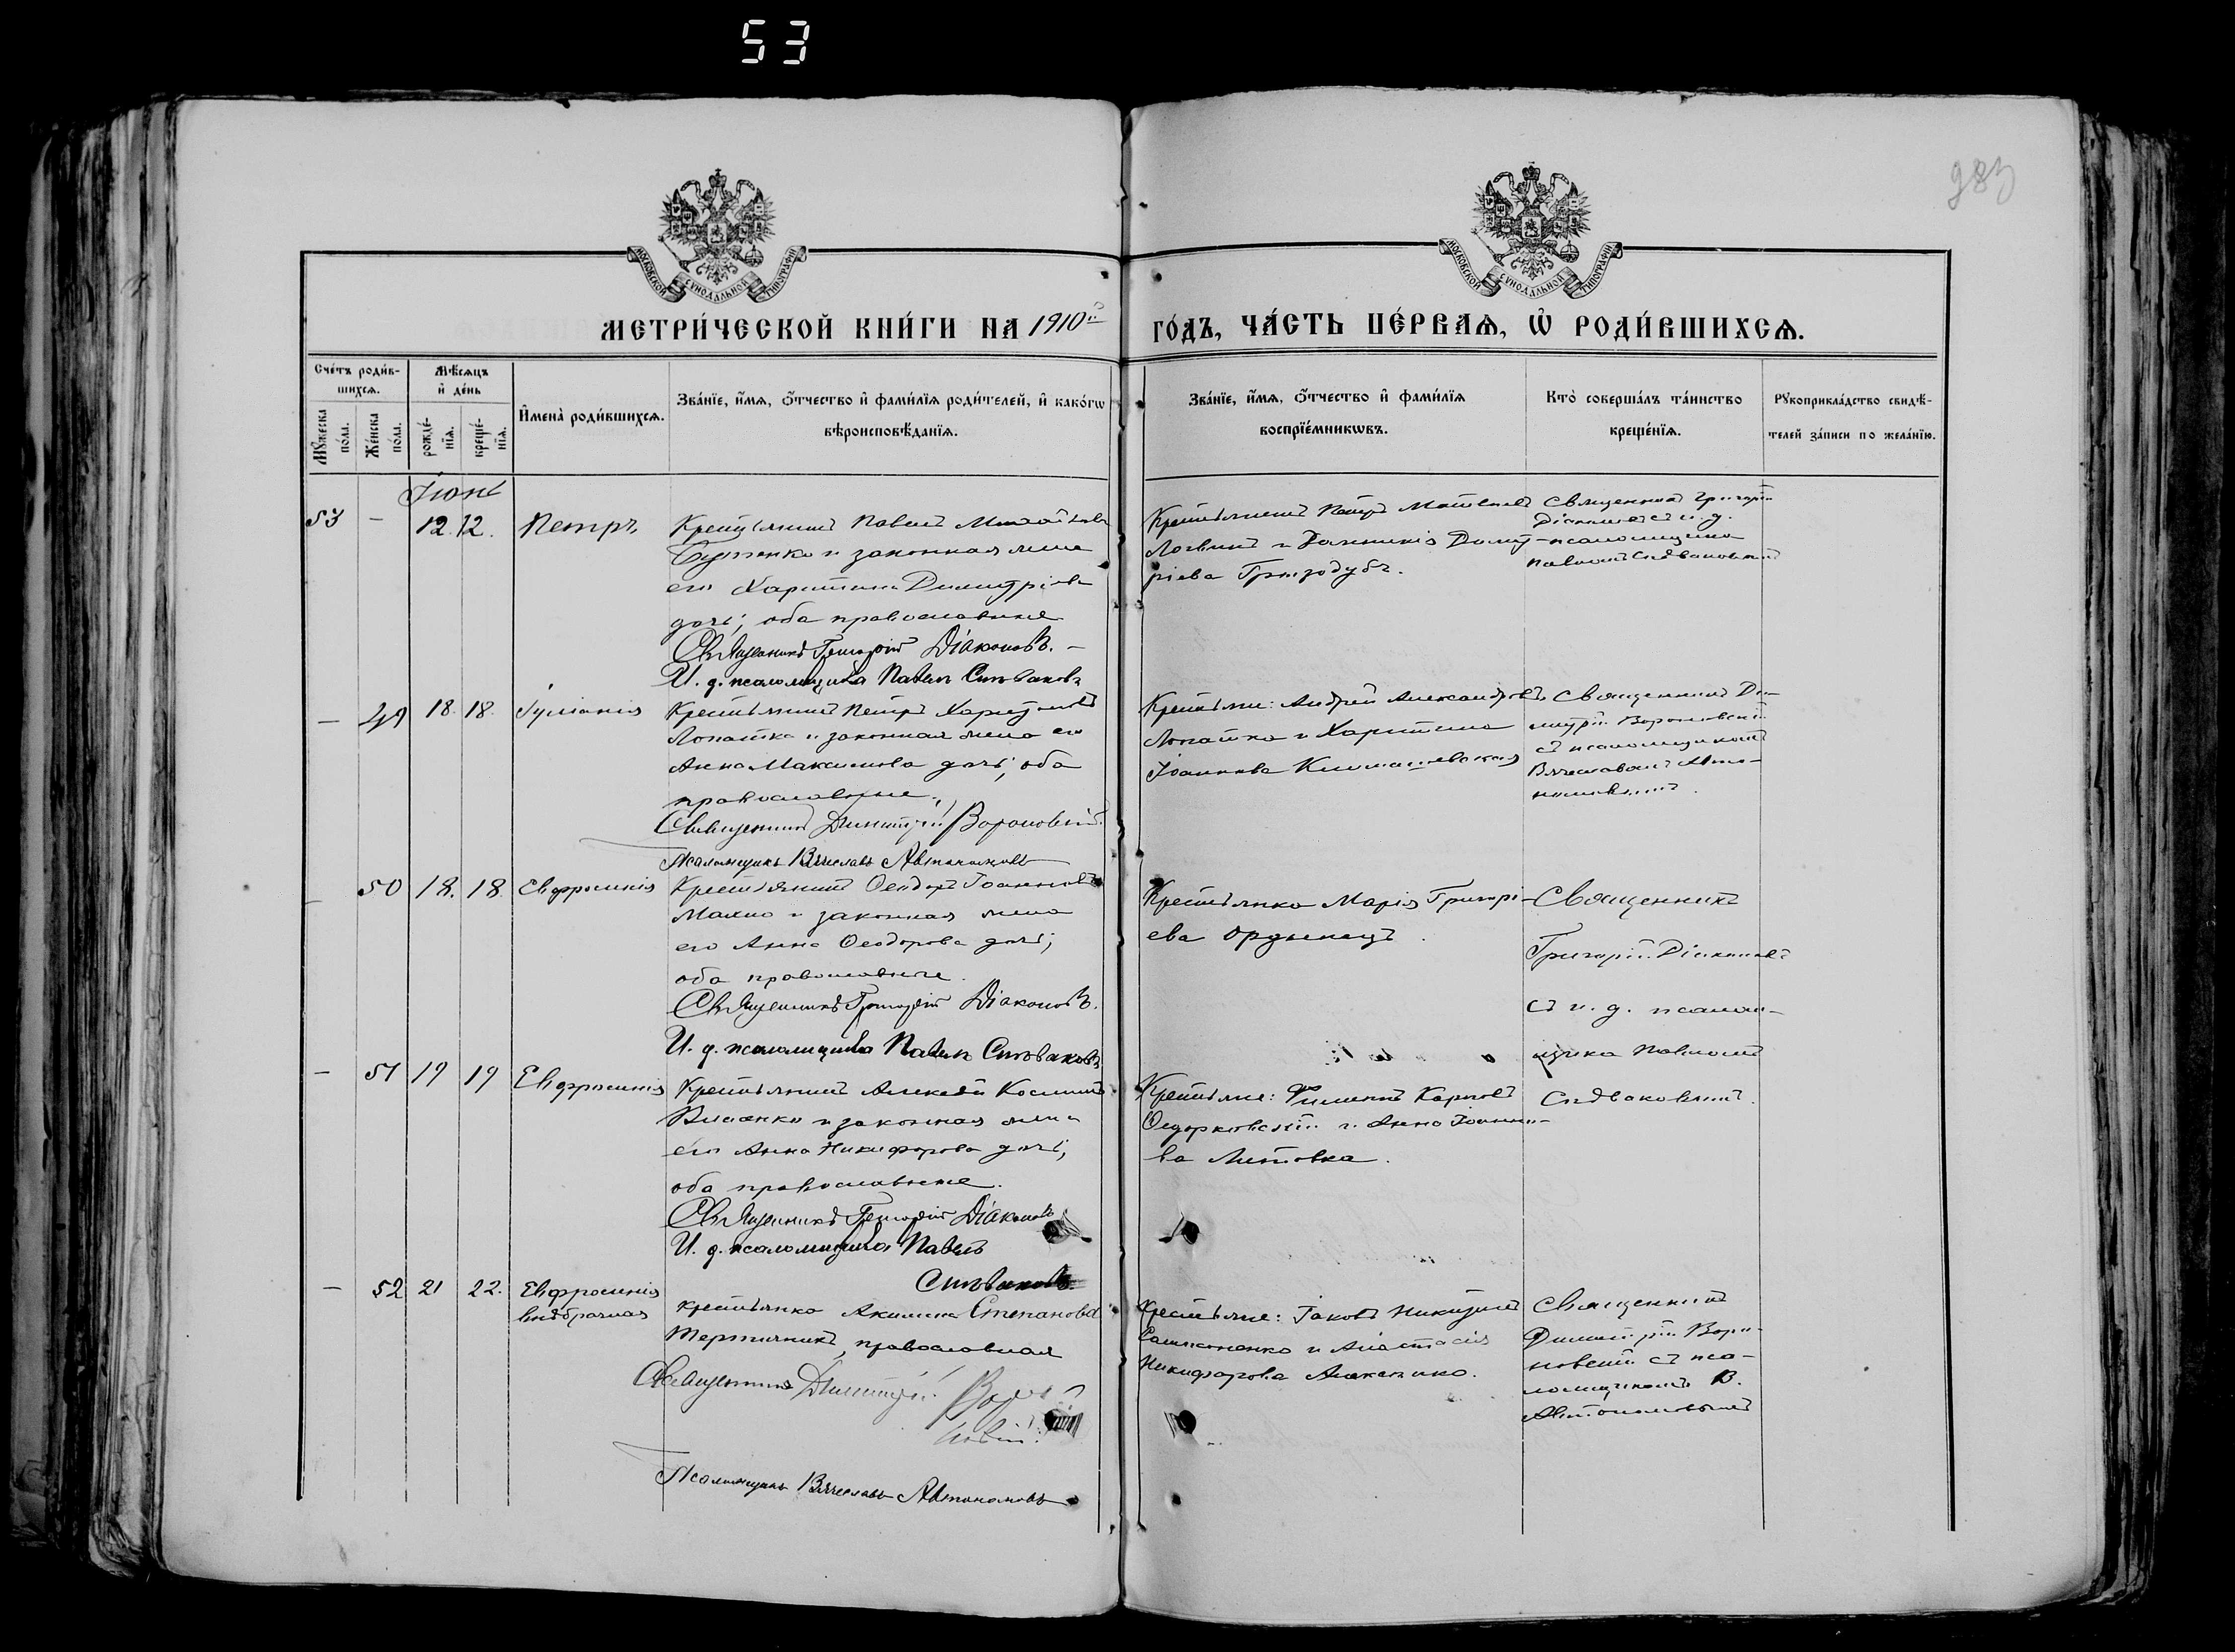 53
983
МОСКОВСКОЙ СѴНОДАЛЬНОЙ ТИПОГРАФІИ
МОСКОВСКОЙ СѴНОДАЛЬНОЙ ТИПОГРАФІИ
МЕТРИ́ЧЕСКОЙ КНИ́ГИ НА 1910й
ГО́ДЪ, ЧА́СТЬ ПЕ́РВАѦ, Ѡ҆ РОДИ́ВШИХСѦ.
Сче́тъ роди́в-
шихсѧ.
Мꙋ́жеска
по́ла.
Же́нска
по́ла.
Мѣ́сѧцъ
и҆ де́нь
рожде́-
нїѧ.
креще́-
нїѧ.
И҆мена̀ роди́вшихсѧ.
Зва́нїе, и҆́мѧ, ѻ҆́тчество и҆ фами́лїѧ роди́телей, и҆ како́гѡ
вѣроисповѣ́данїѧ.
Зва́нїе, и҆́мѧ, ѻ҆́тчество и҆ фами́лїѧ
воспрїе́мникѡвъ.
Кто̀ соверша́лъ та́инство
креще́нїѧ.
Рꙋкоприкла́дство свидѣ́-
телей за́писи по жела́нїю.
Іюнь
53 — 12. 12. Петръ
Крестьянинъ Павелъ
и законная жена
его Харитина Димитріева
дочь; оба православные
Священникъ Григорій Діаконовъ. —
И. д. псаломщика Павелъ Сиѣваковъ
Крестьянинъ Петръ Матвеевъ
Логвинъ и Домникія Димит-
ріева Гризодубъ.
Священник Григорій
Діаконовъ съ и. д.
псаломщика
Павломъ
— 49 18. 18. Іуліанія
Крестьянинъ Петръ Харитоновъ
Лопатка и законная жена его
Анна Максимова дочь; оба
православные.
Священникъ Димитрій Вороновскій.
Псаломщикъ Вячеславъ Автономовъ
Крестьяне: Андрей Александровъ
Лопатка и Харитина
Іоаннова Климашевская
Священникъ Ди-
митрій Вороновскій
съ псаломщикомъ
Вячеславомъ Авто-
номовымъ.
— 50 18. 18. Евфросинія
Крестьянинъ Ѳеодоръ Іоанновъ
Махно и законная жена
его Анна Ѳеодорова дочь;
оба православные.
Священникъ Григорій Діаконовъ.
И. д. псаломщика Павелъ Сиѣваковъ
Крестьянка Марія Григорі-
ева Ордынецъ.
Священникъ
Григорій Діаконовъ
съ и. д. псалом-
щика Павломъ
Сиѣваковымъ.
— 51 19 19 Евфросинія
Крестьянинъ Алексѣй Косминъ
Власенко и законная жена
его Анна Никифорова дочь;
оба православные.
Священникъ Григорій Діаконовъ
И. д. псаломщика Павелъ
Сиѣваковъ.
Крестьяне: Филиппъ Карповъ
Ѳедорковскій и Анна Іоанно-
ва Литовка.
— 52 21 22. Евфросинія
внѣбрачная
крестьянка Акилина Степанова
Терпичникъ, православная
Священникъ Димитрій Воро-
новскій.
Псаломщикъ Вячеславъ Автономовъ
Крестьяне: Іаковъ Никитинъ
Самсоненко и Анастасія
Никифорова Алексенко.
Священникъ
Димитрій Воро-
новскій съ пса-
ломщикомъ В.
Автономовымъ